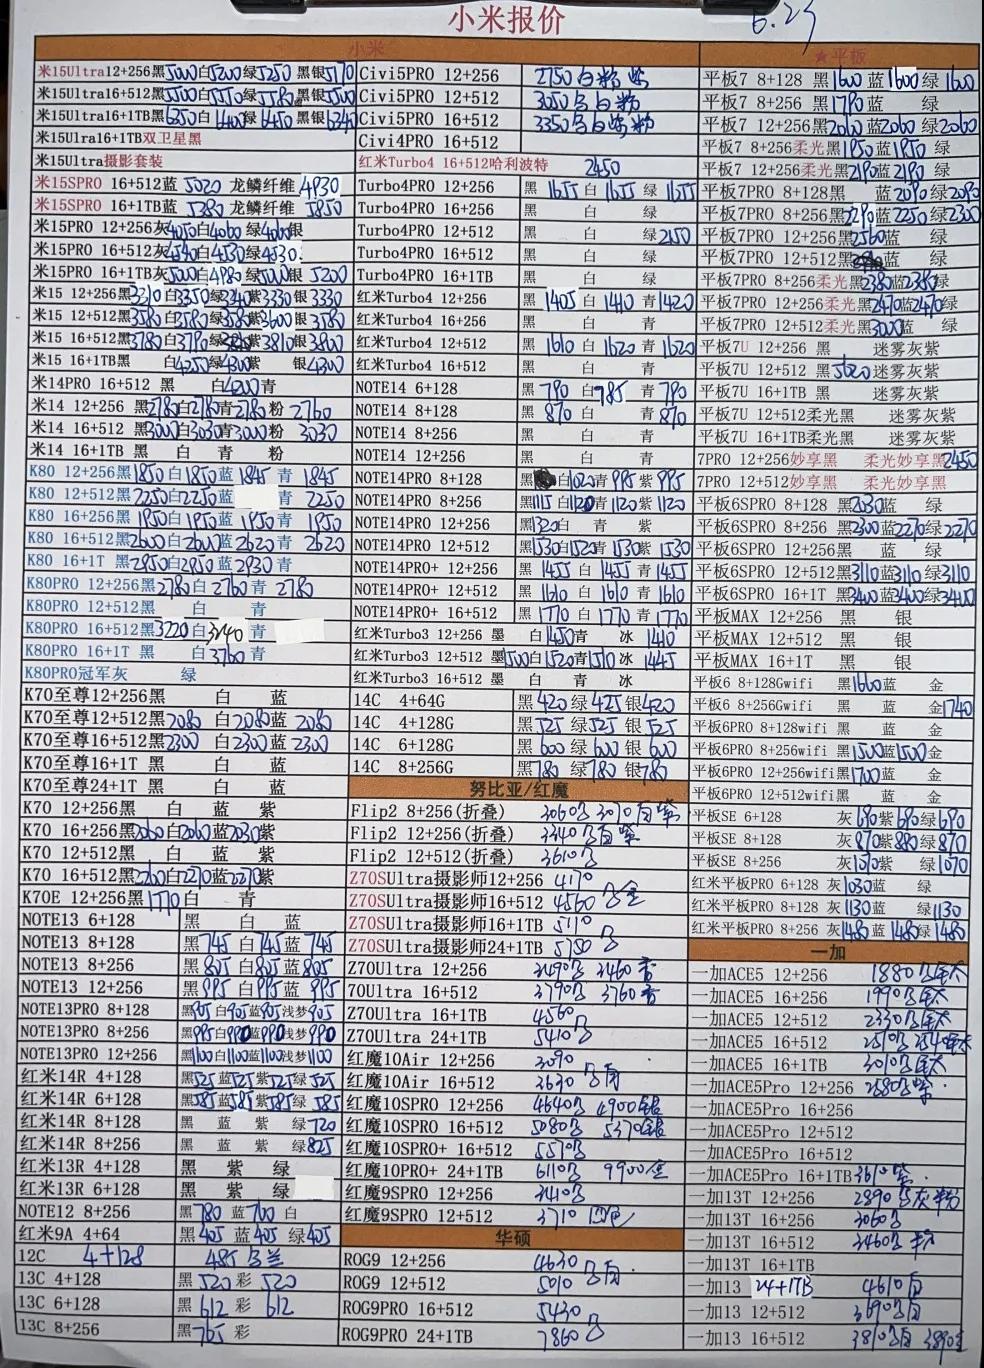 小米报价 6.25
小米
米15Ultra12+256黑5000白5200绿5250 黑银5170
米15Ultra16+512黑5500白5550绿5580黑银5500
米15Ultra16+1TB黑6350白6400绿6450 黑银6340
米15Ulra16+1TB双卫星黑
米15Ultra摄影套装
米15SPRO 16+512蓝 5020 龙鳞纤维 4930
米15SPRO 16+1TB蓝 5380 龙鳞纤维 5850
米15PRO 12+256灰4050白4060 绿4060银
米15PRO 16+512灰4540白4530绿4530
米15PRO 16+1TB灰5000白4980绿5000银 5200
米15 12+256黑3310白3350绿3340紫3330 银 3330
米15 12+512黑3580白3580绿3580紫3600 银 3580
米15 16+512黑3780白3790绿 紫3810银3800
米15 16+1TB黑 白4250绿4300紫 银4300
米14PRO 16+512 黑 白4200青
米14 12+256 黑2780白2780青2780 粉 2760
米14 16+512 黑3000白3030青3000 粉 3030
米14 16+1TB 黑 白 青 粉
K80 12+256黑1850白1850蓝 1845 青 1845
K80 12+512黑2250白2250蓝 青 2250
K80 16+256黑1950白1950蓝 1950青 1950
K80 16+512黑2600白2600蓝2620青 2620
K80 16+1T 黑2950白2950蓝2930青
K80PRO 12+256黑2780白 2760青 2780
K80PRO 12+512黑 白 青
K80PRO 16+512黑3220白3240 青
K80PRO 16+1T 黑 白3760青
K80PRO冠军灰 绿
K70至尊12+256黑 白 蓝
K70至尊12+512黑2080 白2080蓝 2080
K70至尊16+512黑2300 白2300蓝 2300
K70至尊16+1T 黑 白 蓝
K70至尊24+1T 黑 白 蓝
K70 12+256黑 白 蓝 紫
K70 16+256黑2060白2060蓝2030紫
K70 12+512黑 白 蓝 紫
K70 16+512黑2260白2270蓝2270紫
K70E 12+256黑1770白 青
NOTE13 6+128 黑 白 蓝
NOTE13 8+128 黑745 白745蓝 745
NOTE13 8+256 黑805 白805蓝 805
NOTE13 12+256 黑995 白995蓝 995
NOTE13PRO 8+128 黑905白905蓝905浅梦905
NOTE13PRO 8+256 黑995白990蓝990浅梦990
NOTE13PRO 12+256 黑1100白1100蓝1100浅梦1100
红米14R 4+128 黑525蓝525紫525绿525
红米14R 6+128 黑585蓝585紫585绿 585
红米14R 8+128 黑 蓝 紫 绿720
红米14R 8+256 黑 蓝 紫 绿825
红米13R 4+128 黑 紫 绿
红米13R 6+128 黑 紫 绿
NOTE12 8+256 黑780 蓝700白
红米9A 4+64 黑405 蓝405 绿405
12C 4+128 485乌兰
13C 4+128 黑 520 彩 520
13C 6+128 黑 612 彩 612
13C 8+256 黑765 彩
Civi5PRO 12+256 2750白粉紫
Civi5PRO 12+512 3050乌白粉
Civi5PRO 16+512 3350乌白紫粉
Civi4PRO 16+512
红米Turbo4 16+512哈利波特 2450
Turbo4PRO 12+256 黑 1655 白 1655 绿 1655
Turbo4PRO 16+256 黑 白 绿
Turbo4PRO 12+512 黑 白 绿2150
Turbo4PRO 16+512 黑 白 绿
Turbo4PRO 16+1TB 黑 白 绿
红米Turbo4 12+256 黑 1405 白 1410 青1420
红米Turbo4 16+256 黑 白 青
红米Turbo4 12+512 黑 1610 白 1620 青 1620
红米Turbo4 16+512 黑 白 青
NOTE14 6+128 黑 790 白785 青 790
NOTE14 8+128 黑 870 白 青870
NOTE14 8+256 黑 白 青
NOTE14 12+256 黑 白 青
NOTE14PRO 8+128 黑 白1020青995紫995
NOTE14PRO 8+256 黑1115 白1120青1120紫1120
NOTE14PRO 12+256 黑1320白 青 紫
NOTE14PRO 12+512 黑1530白1520青 1530紫 1530
NOTE14PRO+ 12+256 黑 1455 白 1455 青1455
NOTE14PRO+ 12+512 黑 1610 白 1610 青1610
NOTE14PRO+ 16+512 黑 1770 白 1770 青 1770
红米Turbo3 12+256 墨 白1450青 冰 1440
红米Turbo3 12+512 墨1500白1520青1510 冰 1445
红米Turbo3 16+512 墨 白 青 冰
14C 4+64G 黑 420 绿 425 银420
14C 4+128G 黑 525 绿525 银525
14C 6+128G 黑 600 绿 600 银 600
14C 8+256G 黑780 绿780 银780
努比亚/红魔
Flip2 8+256(折叠) 3060乌 3070白紫
Flip2 12+256(折叠) 3340乌白紫
Flip2 12+512(折叠) 3610乌
Z70SUltra摄影师12+256 4170
Z70SUltra摄影师16+512 4560乌金
Z70SUltra摄影师16+1TB 5110
Z70SUltra摄影师24+1TB 5750乌
Z70Ultra 12+256 3490乌 3460
70Ultra 16+512 3790乌 3760
Z70Ultra 16+1TB 4560
Z70Ultra 24+1TB 5410乌
红魔10Air 12+256 3090
红魔10Air 16+512 3630乌白
红魔10SPRO 12+256 4640乌 4900银
红魔10SPRO 16+512 5080乌 5370银
红魔10SPRO+ 16+512 5570乌
红魔10PRO+ 24+1TB 6110乌 9900金
红魔9SPRO 12+256 3410乌
红魔9SPRO 12+512 3710四色
华硕
ROG9 12+256 4630乌白
ROG9 12+512 5090
ROG9PRO 16+512 5430
ROG9PRO 24+1TB 7860乌
★平板
平板7 8+128 黑 1600 蓝 1600 绿 1600
平板7 8+256 黑1790蓝 绿
平板7 12+256 黑2060蓝2060 绿2060
平板7 8+256柔光黑1950蓝1950 绿
平板7 12+256柔光黑2190蓝2190 绿
平板7PRO 8+128黑 蓝 2090 绿2090
平板7PRO 8+256黑2290蓝2250 绿2300
平板7PRO 12+256黑2560蓝 绿
平板7PRO 12+512黑 蓝 绿
平板7PRO 8+256柔光黑2380蓝2385绿
平板7PRO 12+256柔光黑2470蓝2470绿
平板7PRO 12+512柔光黑3000蓝 绿
平板7U 12+256 黑 迷雾灰紫
平板7U 12+512 黑5020迷雾灰紫
平板7U 16+1TB 黑 迷雾灰紫
平板7U 12+512柔光黑 迷雾灰紫
平板7U 16+1TB柔光黑 迷雾灰紫
7PRO 12+256妙享黑 柔光妙享黑2450
7PRO 12+512妙享黑 柔光妙享黑
平板6SPRO 8+128 黑2030蓝 绿
平板6SPRO 8+256 黑2300蓝2270绿2270
平板6SPRO 12+256 黑 蓝 绿
平板6SPRO 12+512黑3110蓝3110 绿3110
平板6SPRO 16+1T 黑3400蓝3400绿3400
平板MAX 12+256 黑 银
平板MAX 12+512 黑 银
平板MAX 16+1T 黑 银
平板6 8+128Gwifi 黑1660蓝 金
平板6 8+256Gwifi 黑 蓝 金1740
平板6PRO 8+128wifi 黑 蓝 金
平板6PRO 8+256wifi 黑1500蓝1500金
平板6PRO 12+256wifi黑1700蓝 金
平板6PRO 12+512wifi黑 蓝 金
平板SE 6+128 灰690紫690绿690
平板SE 8+128 灰870紫880绿870
平板SE 8+256 灰1070紫 绿1070
红米平板PRO 6+128 灰1030蓝 绿
红米平板PRO 8+128 灰1130蓝 绿1130
红米平板PRO 8+256 灰1480蓝1480绿1480
一加
一加ACE5 12+256 1880乌钛
一加ACE5 16+256 1990乌钛
一加ACE5 12+512 2330乌钛
一加ACE5 16+512 2510乌 2540钛
一加ACE5 16+1TB 3010乌钛
一加ACE5Pro 12+256 2680乌紫
一加ACE5Pro 16+256
一加ACE5Pro 12+512
一加ACE5Pro 16+512
一加ACE5Pro 16+1TB 3610紫
一加13T 12+256 2890乌灰粉
一加13T 16+256 3060乌
一加13T 16+512 3460乌粉
一加13T 16+1TB
一加13 24+1TB 4610白
一加13 12+512 3690乌白
一加13 16+512 3810乌白 3890蓝